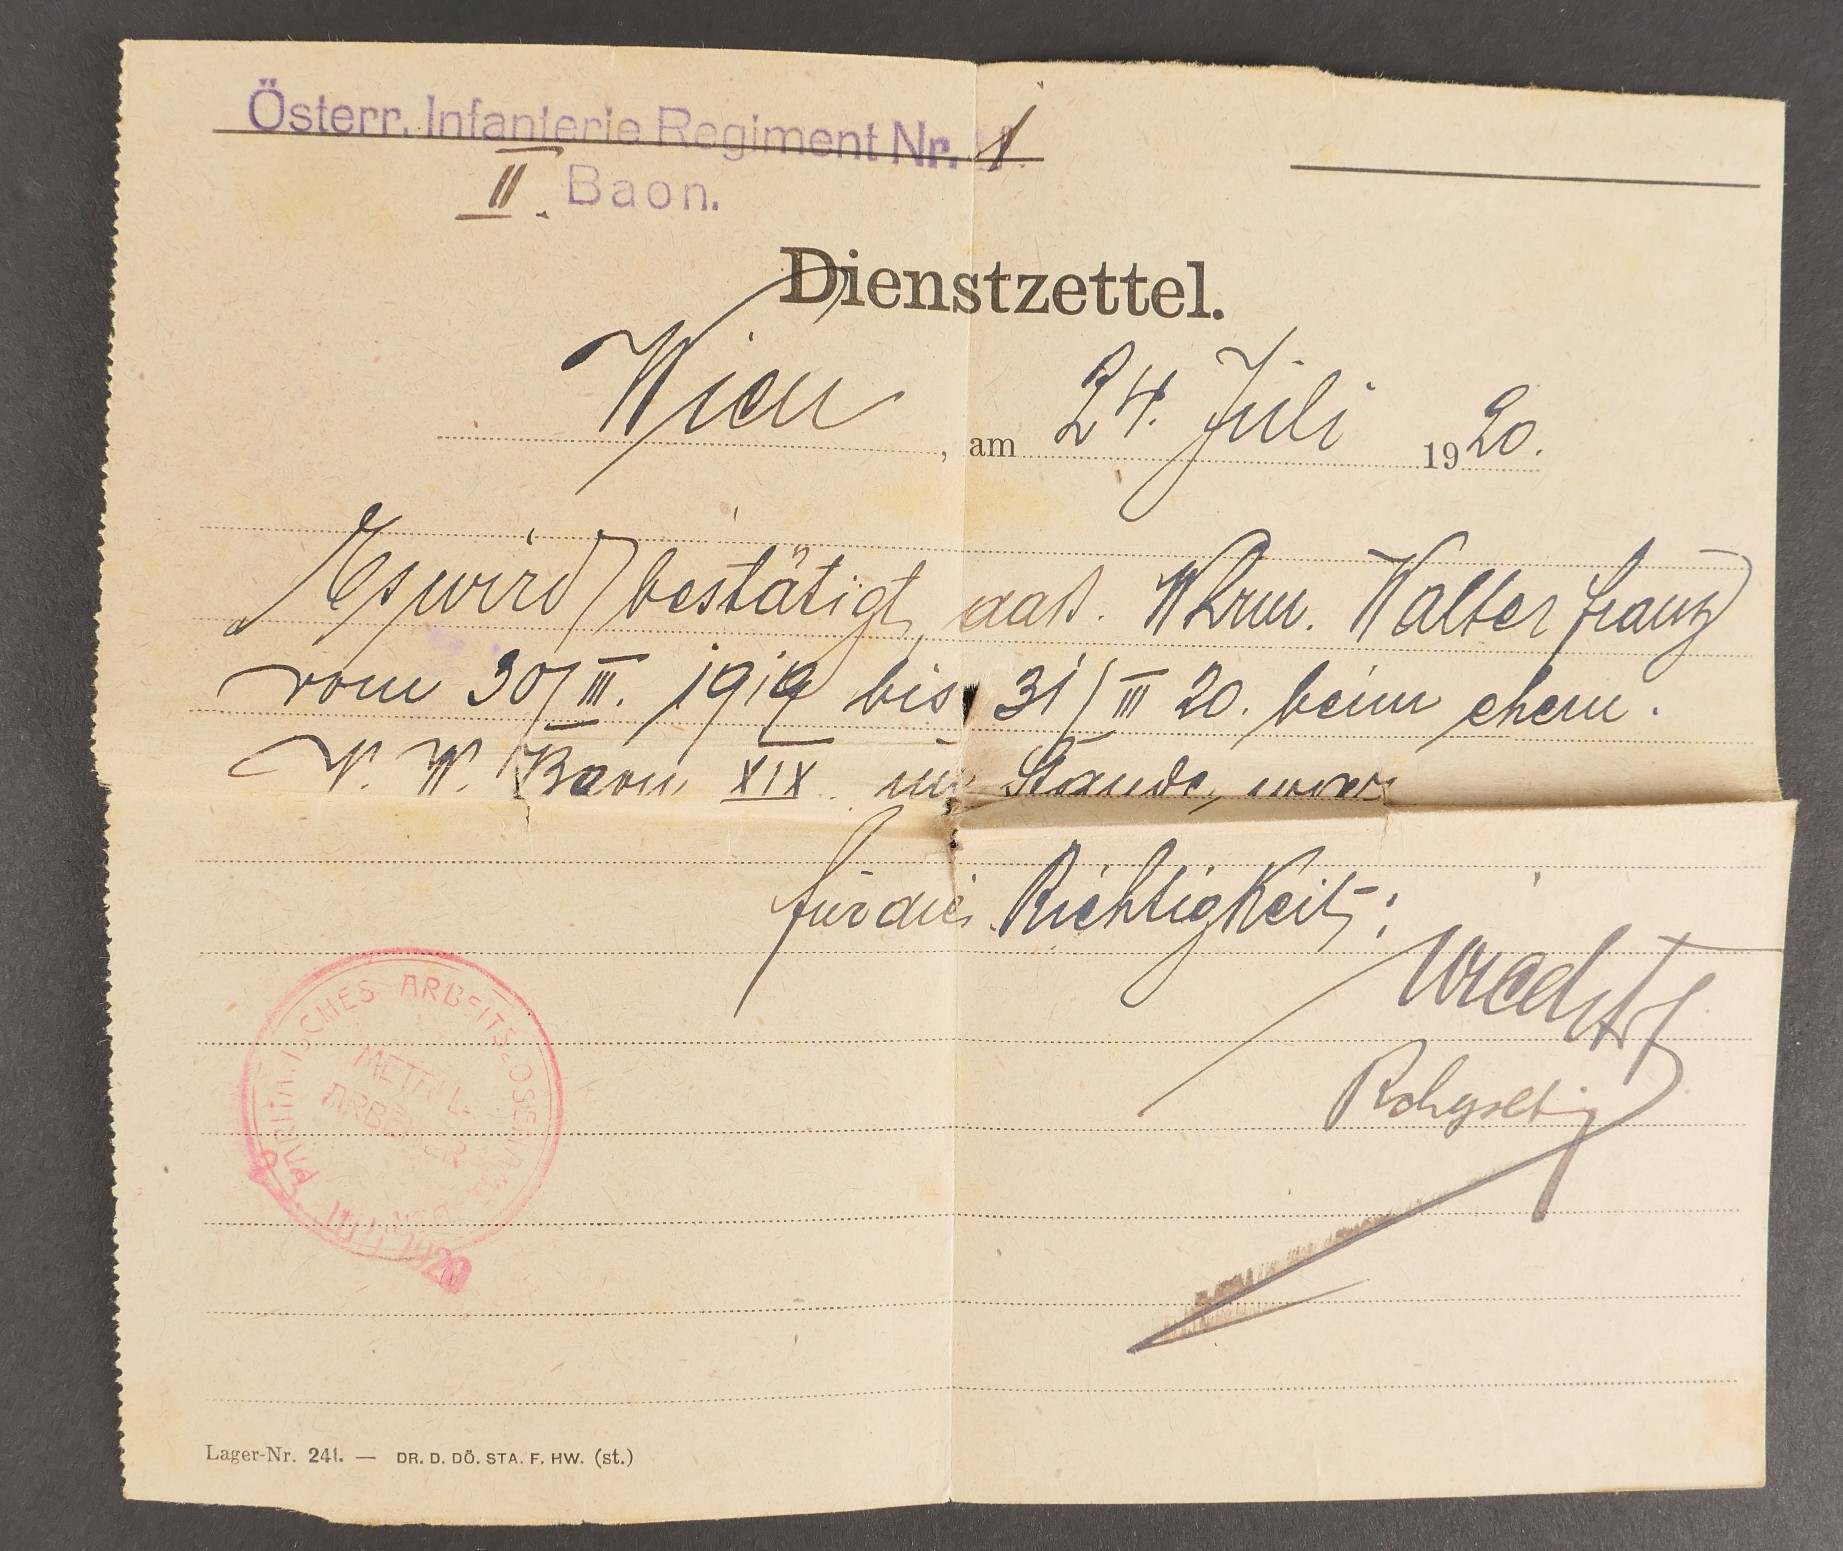 Österr. Infanterie Regiment Nr. 1
II. Baon.
Dienstzettel.
Wien, am 24. Juli 1920.
Es wird bestätigt, daß. Whrm. Walter Franz
vom 30/III. 1919 bis 31/III 20. beim ehem.
V. W. Baon XIX im Stande, war
für die Richtigkeit:
PARITÄTISCHES ARBEITS-LOSENAMT
METALL-
ARBEITER
1920
Lager-Nr. 241. — DR. D. DÖ. STA. F. HW. (st.)